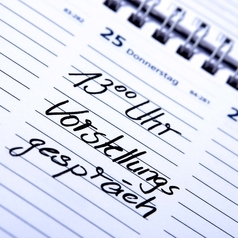 25 Donnerstag
13⁰⁰ Uhr
Vorstellungs
gespräch